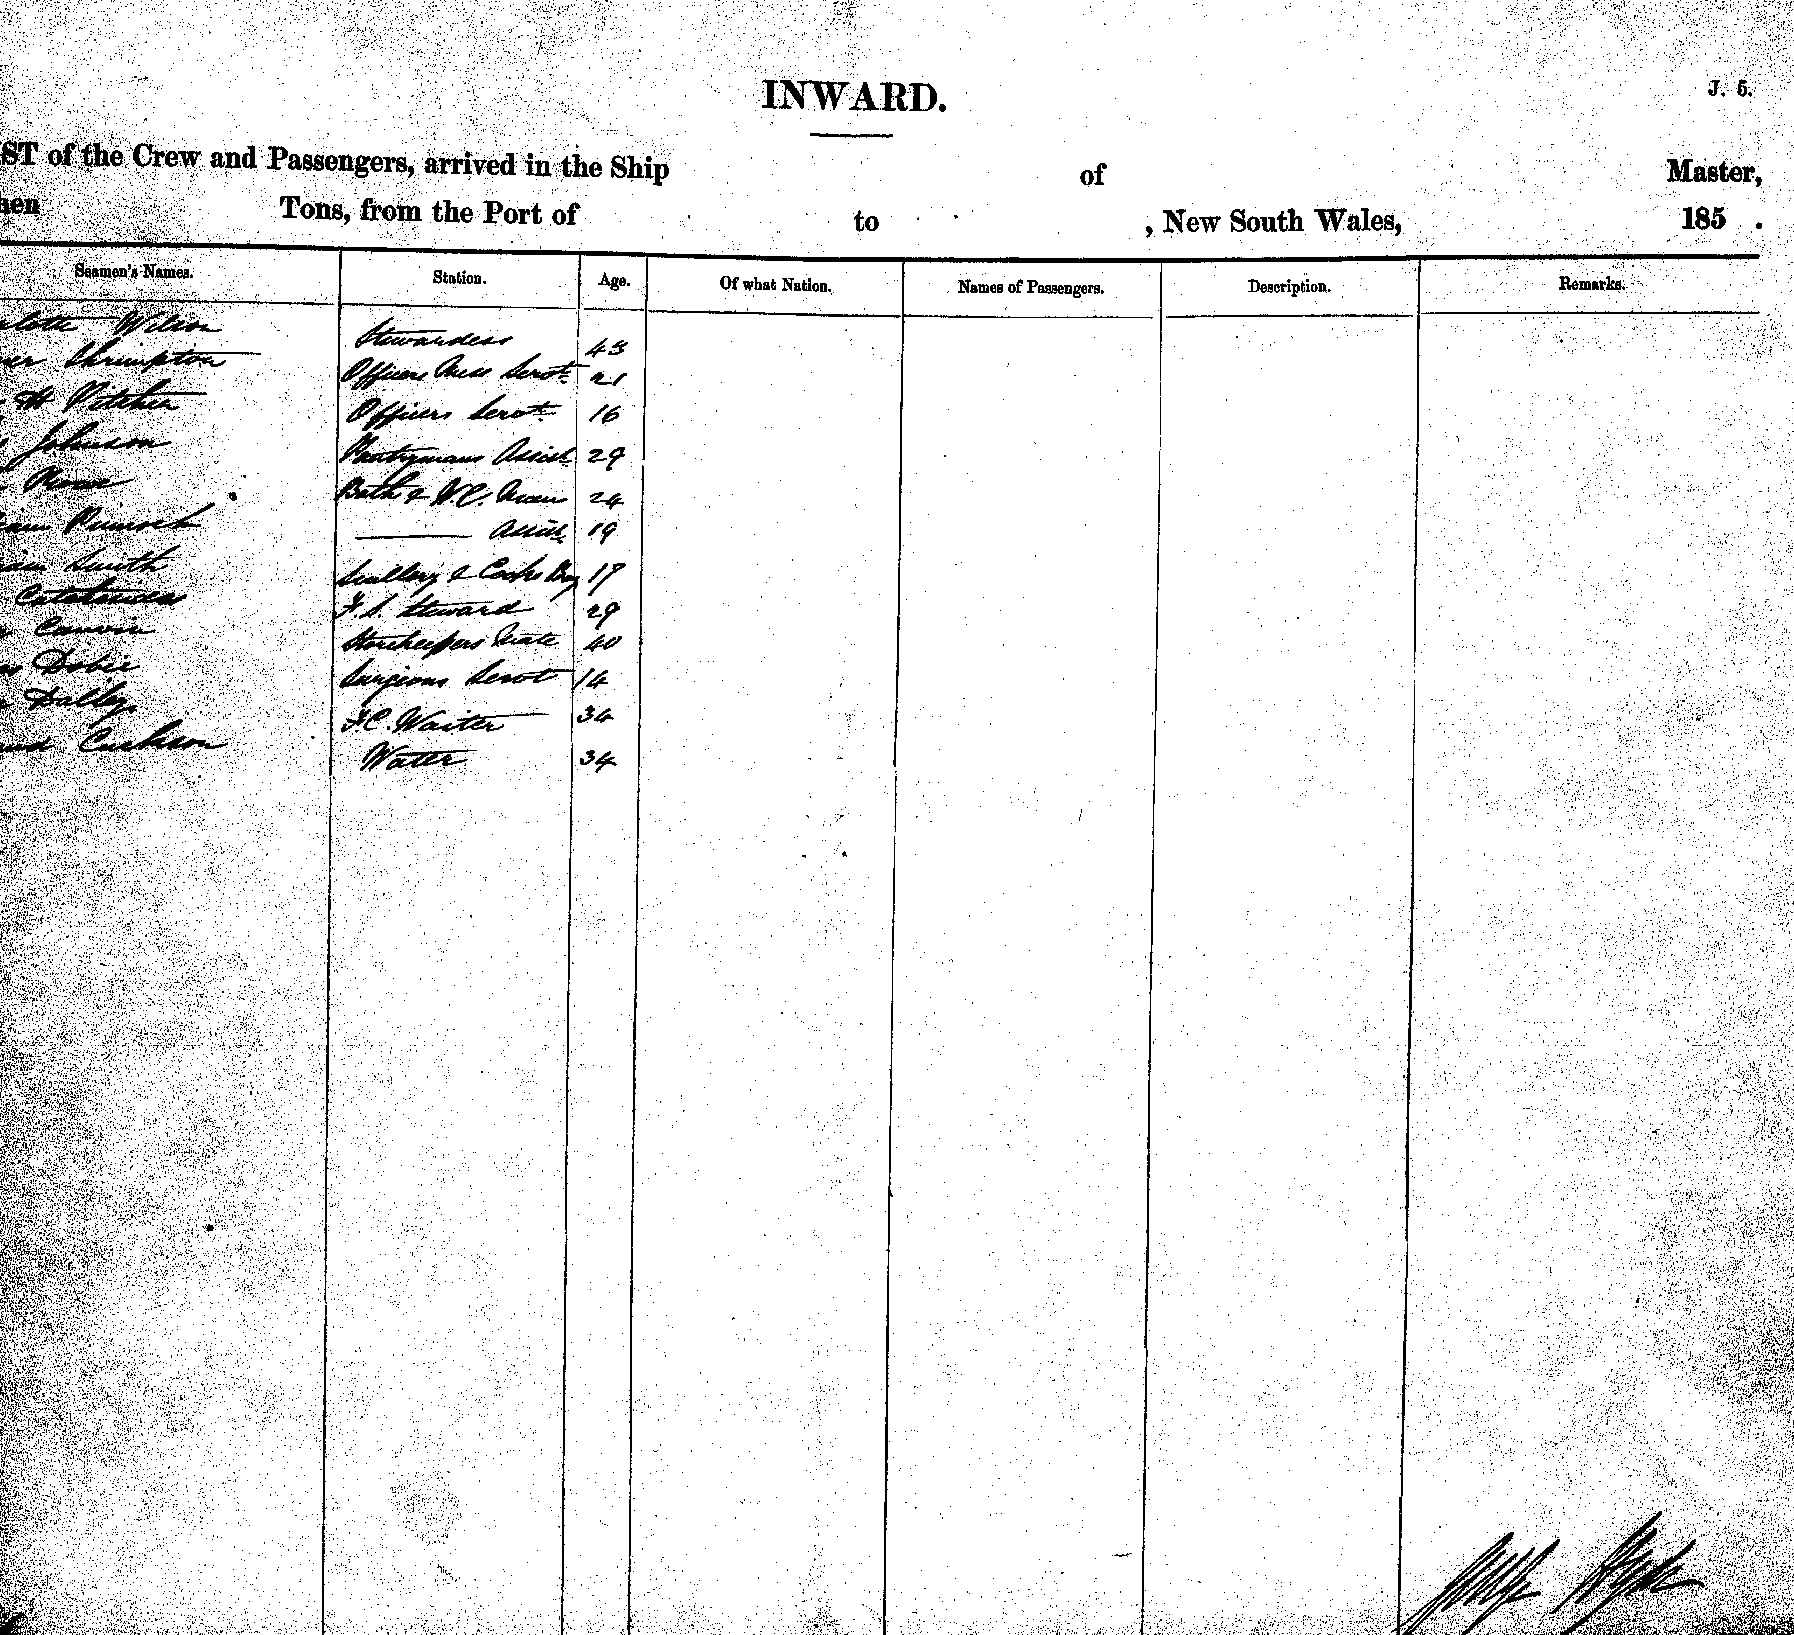 INWARD.
J. 5.
ST of the Crew and Passengers, arrived in the Ship of Master,
Tons, from the Port of to , New South Wales, 185 .
Seamen's Names. Station. Age. Of what Nation. Names of Passengers. Description. Remarks.
Wilson Stewardess 43
Shrimpton Officers Mess Servt. 21
H Pitcher Officers Servt. 16
Johnson Pantrymans Assist. 29
Bath & W.C. Man 24
Assist. 19
Smith Scullery & Cooks Boy 17
F. S. Steward 29
Storekeepers Mate 40
Dobie Surgeons Servt 14
Dalley F.C. Waiter 34
Waiter 34